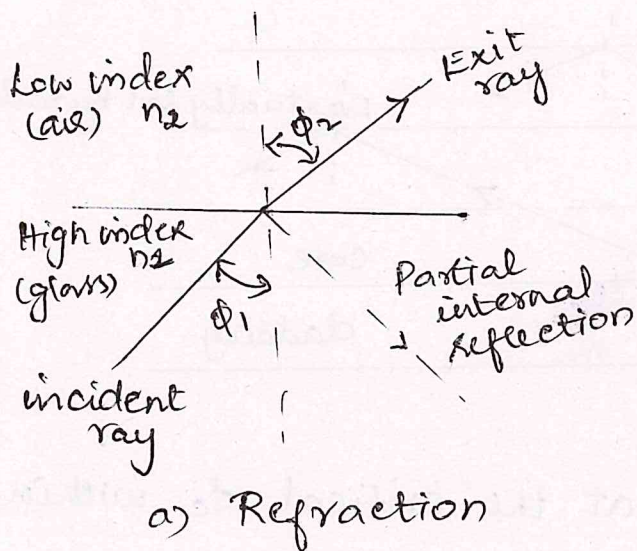 Low index
(air) n2
Exit
ray
ϕ2
High index
n1
(glass)
ϕ1
Partial
internal
reflection
incident
ray
a) Refraction